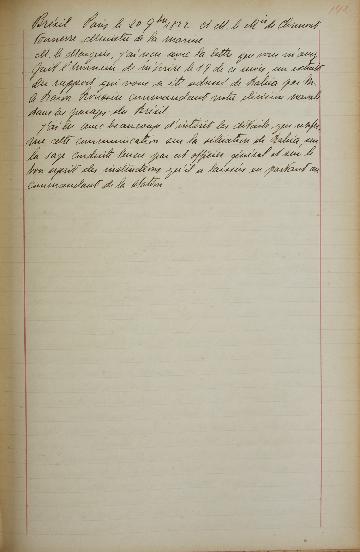 142
Brésil Paris le 20 9bre 1822 à M. le Mis de Clermont
Tonnerre Ministre de la marine
M. le Marquis, j'ai reçu avec la lettre que vous m'avez
fait l'honneur de m'écrire le 19 de ce mois, un extrait
du rapport qui vous a été adressé de Bahia par M.
le Baron Roussin commandant notre division navale
dans les parages du Brésil
J'ai lu avec beaucoup d'intérêt les détails que renfer
me cette communication sur la situation de Bahia, sur
la sage conduite tenue par cet officier général et sur le
bon esprit des instructions qu'il a laissées en partant au
commandant de la station